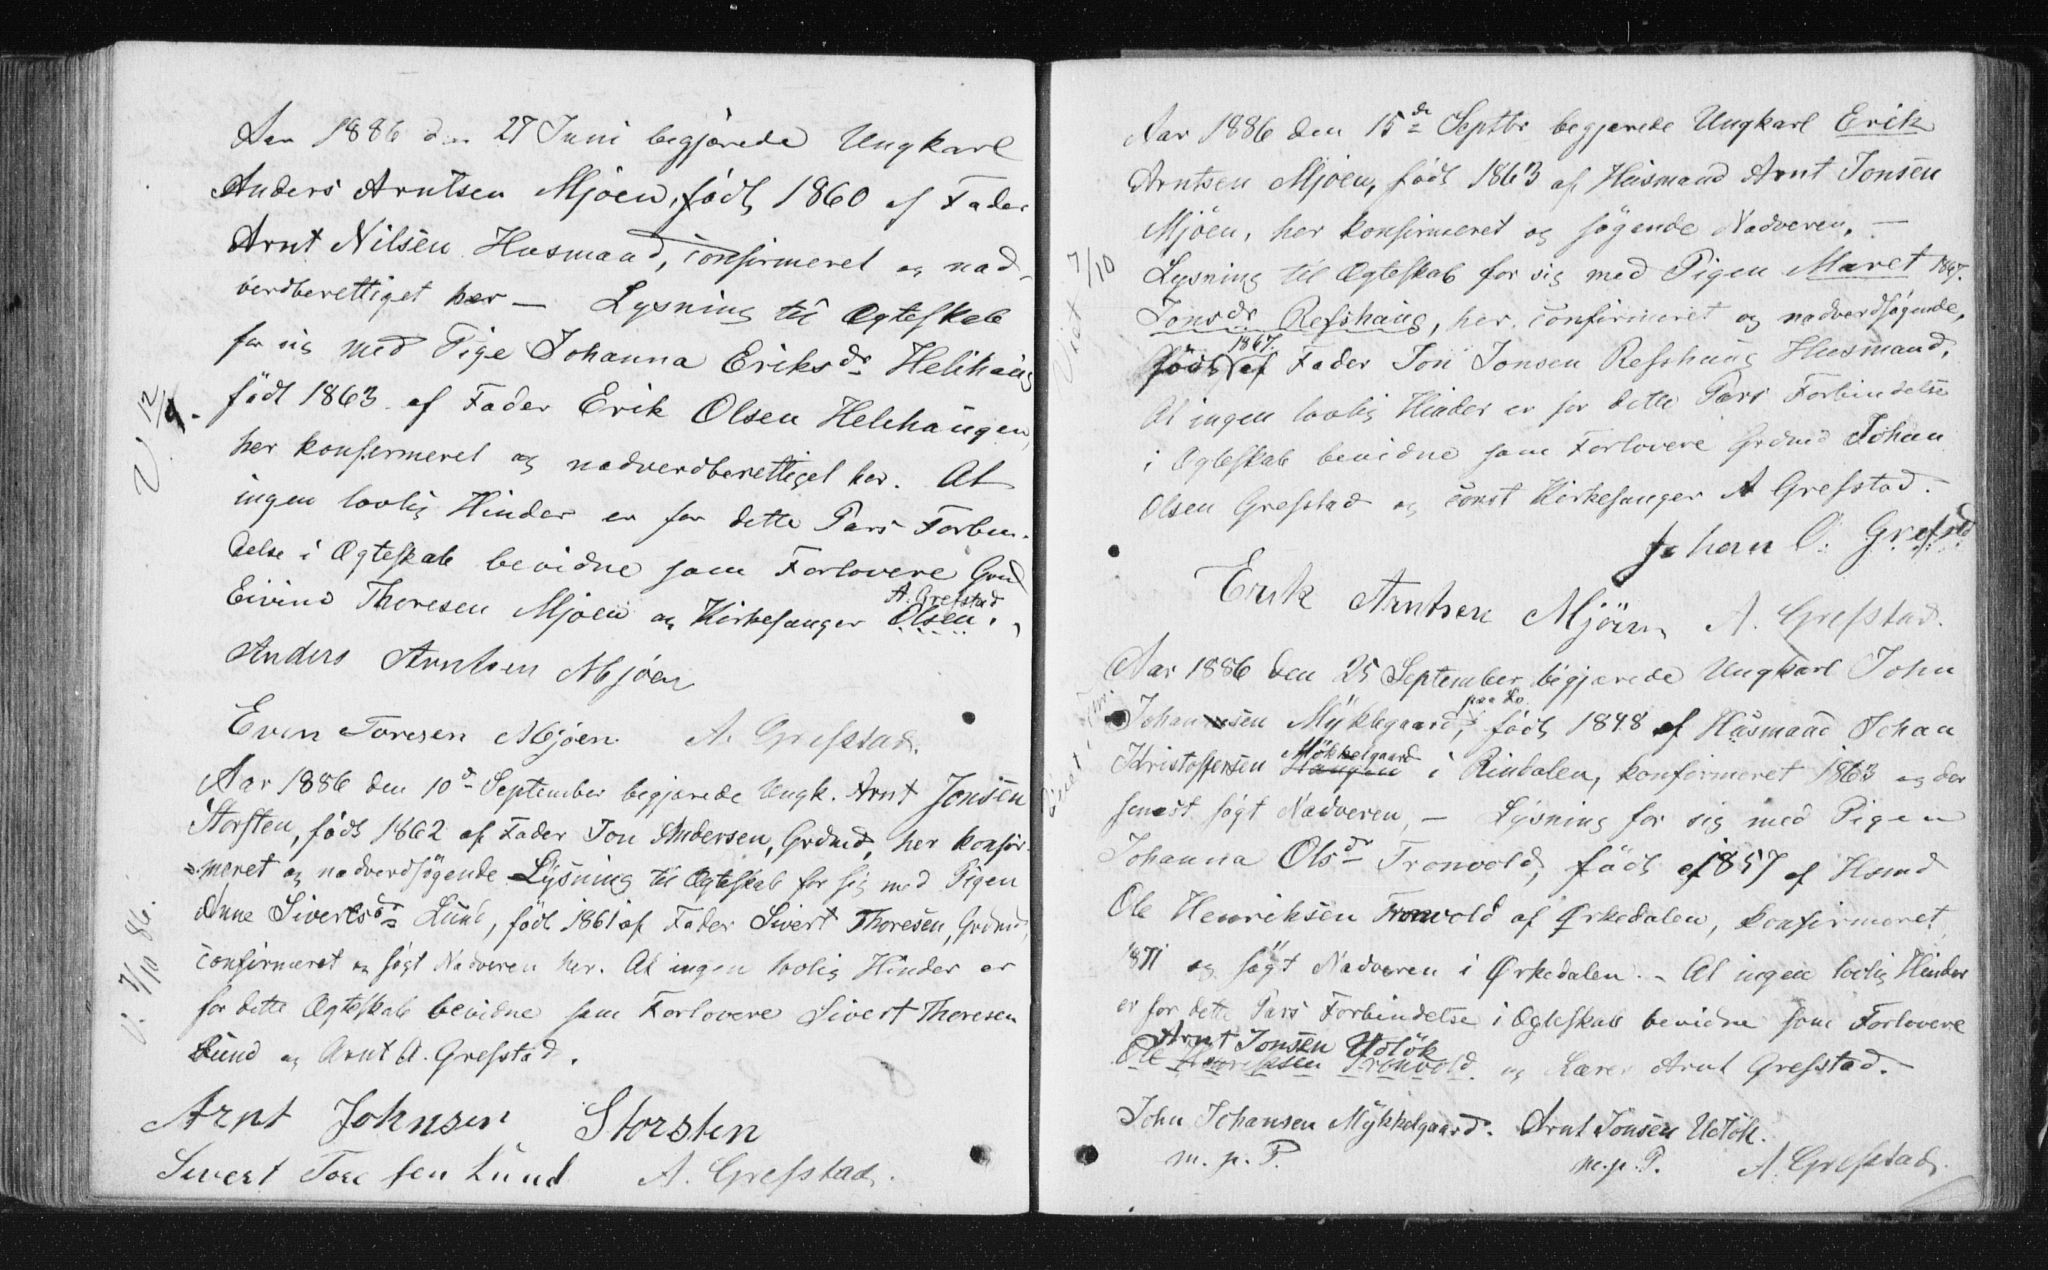 Aar 1886 den 27 Juni begjærede Ungkarl
Anders Arntsen Mjøen, født 1860 af Fader
Arnt Nilsen Husmand, confirmeret og nad-
verdberettiget her — Lysning til Ægteskab
for sig med Pige Johanna Eriksdr Helihaug
født 1863 af Fader Erik Olsen Helehaugen,
V. 12/9.
her konfirmeret og nadverdberettiget her. At
ingen lovlig Hinder er for dette Pars Forbin-
delse i Ægteskab bevidne som Forlovere Grdmd
Eivind Thoresen Mjøen og Kirkesanger Olsen.
A. Grefstad
Anders Arntsen Mjøen
Even Toresen Mjøen A. Grefstad.
Aar 1886 den 10de September begjærede Ungk. Arnt Jonsen
Storsten, født 1862 af Fader Jon Andersen, Grdmd, her konfir-
=meret og nadverdsøgende Lysning til Ægteskab for sig med Pigen
Anne Sivertsdr Lund, født 1861 af Fader Sivert Thoresen, Grdmd,
V. 7/10 86.
confirmeret og søgt Nadveren her. At ingen lovlig Hinder er
for dette Ægteskab bevidne som Forlovere Sivert Thoresen
Lund og Arnt A. Grefstad.
Arnt Johnsen Storsten
Sivert Toresen Lund A. Grefstad.
Aar 1886 den 15de Septbr begjærede Ungkarl Erik
Arntsen Mjøen, født 1863 af Husmand Arnt Jonsen
Mjøen, her konfirmeret og søgende Nadveren. —
Viet 7/10
Lysning til Ægteskab for sig med Pigen Maret 1867.
Jonsdr Refshaug, her confirmeret og nadverdsøgende,
født 1867. af Fader Jon Jonsen Refshaug Husmand.
At ingen lovlig Hinder er for dette Pars Forbindelse
i Ægteskab bevidne som Forlovere Grdmd Johan
Olsen Grefstad og const Kirkesanger A Grefstad.
Johan O. Grefstad
Erik Arntsen Mjöen A. Grefstad.
Aar 1886 den 25 September begjærede Ungkarl John
Johansen Mykkegaard, paa Lo født 1848 af Husmand Johan
Kristoffersen Haugen Mökkelgaard i Rindalen, konfirmeret 1863 og der
senest søgt Nadveren, — Lysning for sig med Pigen
Johanna Olsdr Tronvold, født af 1857 af Hsmd
Ole Henriksen Tronvold af Ørkedalen, konfirmeret
1871 og søgt Nadveren i Ørkedalen. - At ingen lovlig Hinder
er for dette Pars Forbindelse i Ægteskab bevidne som Forlovere
Arnt Jonsen Udløk
Ole Henriksen Tronvold og Lærer Arnt Grefstad.
John Johansen Mykkelgaard. Arnt Jonsen Udlök.
m. p. P. m. p. P. A. Grefstad.